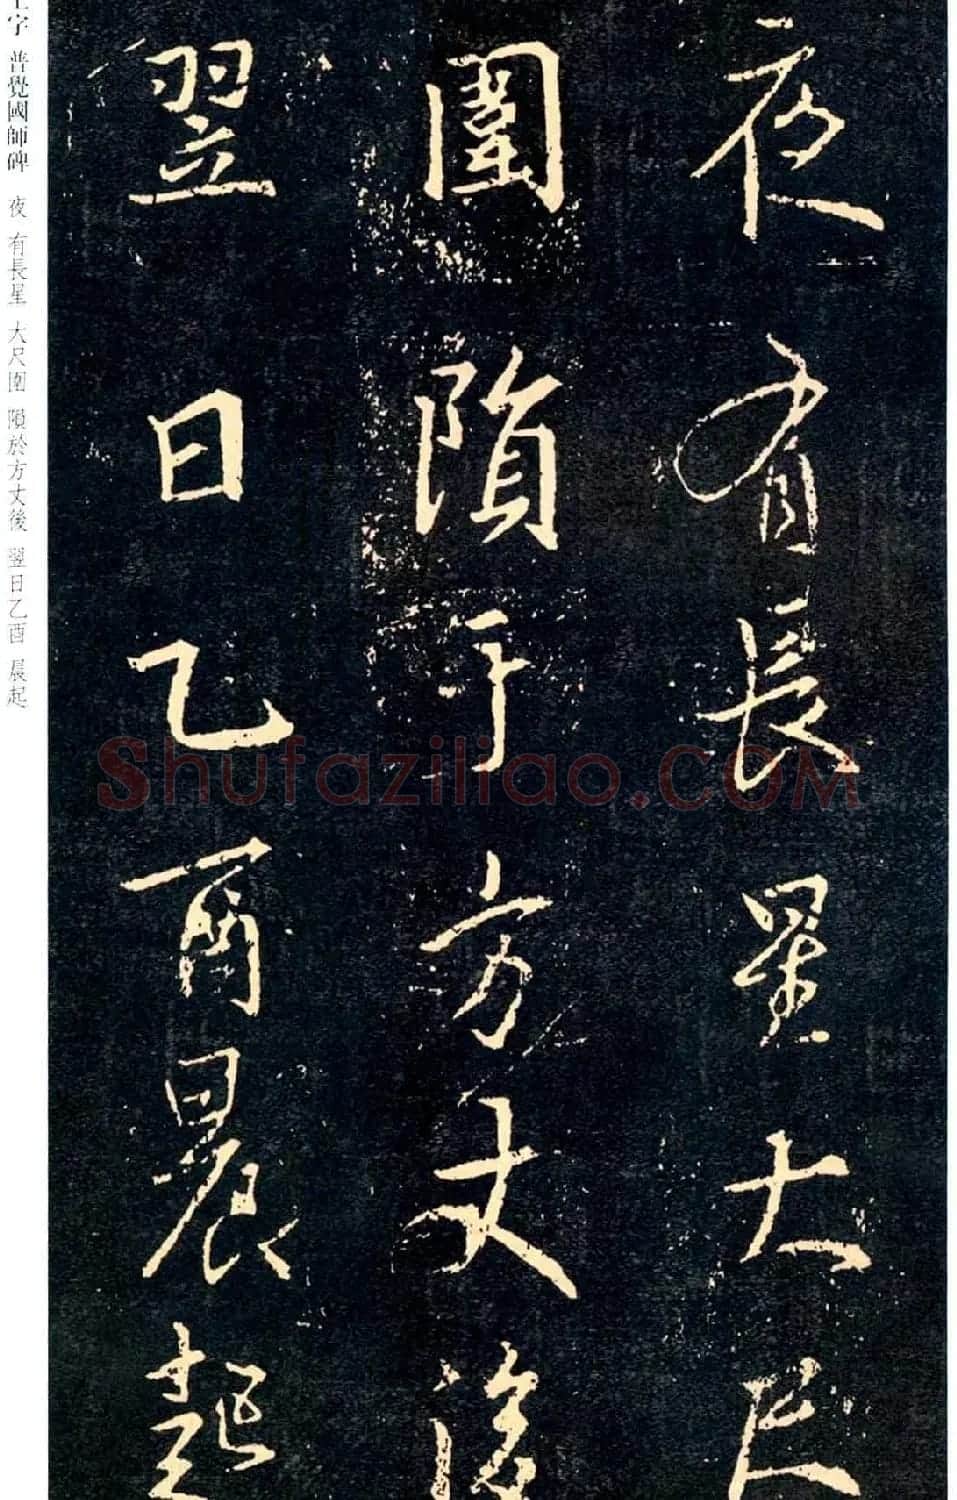 夜有長星大尺
圍隕于方丈後
翌日乙酉晨起
字 普覺國師碑 夜 有長星 大尺圍 隕於方丈後 翌日乙酉 晨起
Shufaziliao.COM